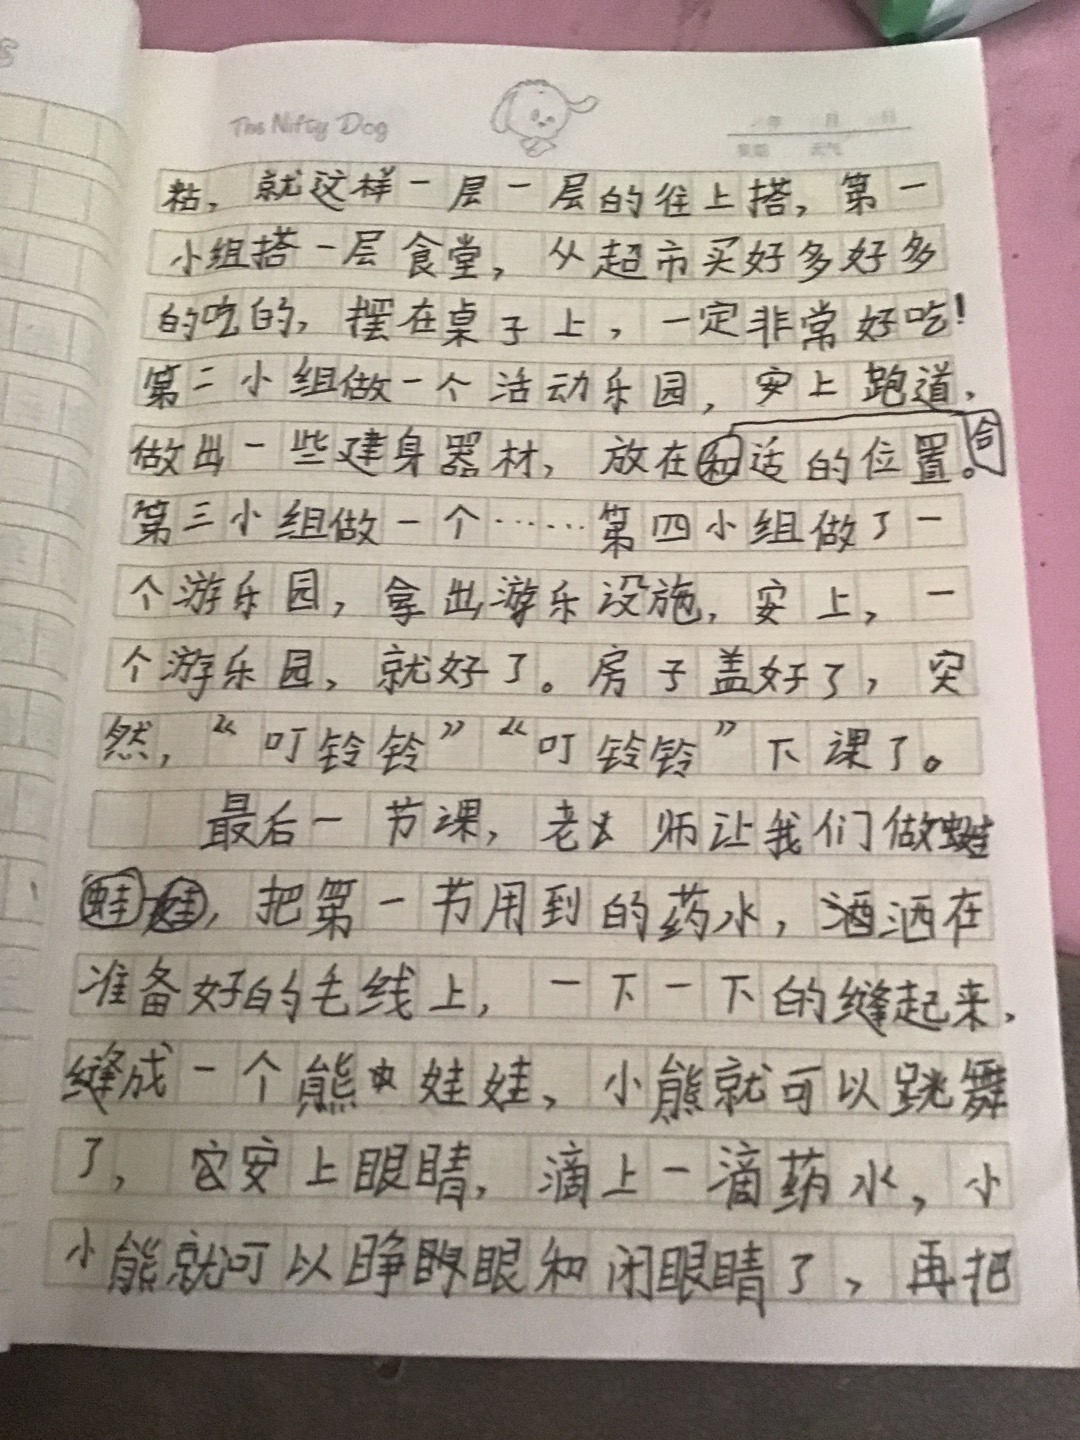 The Nifty Dog
粘，就这样一层一层的往上搭，第一
小组搭一层食堂，从超市买好多好多
的吃的，摆在桌子上，一定非常好吃！
第二小组做一个活动乐园，安上跑道，
做出一些建身器材，放在合适的位置。
第三小组做一个……第四小组做了一
个游乐园，拿出游乐设施，安上，一
个游乐园，就好了。房子盖好了，突
然，“叮铃铃”“叮铃铃”下课了。
最后一节课，老师让我们做蛙
蛙娃，把第一节用到的药水，洒洒在
准备好的毛线上，一下一下的缝起来，
缝成一个熊娃娃，小熊就可以跳舞
了，安上眼睛，滴上一滴药水，小
小熊就可以睁眼和闭眼睛了，再把